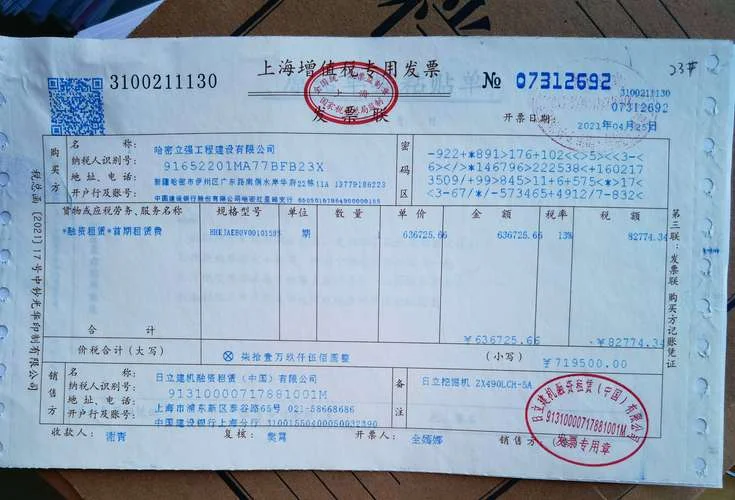 3100211130
上海增值税专用发票
发票联
№ 07312692
3100211130
07312692
23#
开票日期: 2021年04月25日
税总函 (2021) 17号中钞光华印制有限公司
购买方
名称: 哈密立强工程建设有限公司
纳税人识别号: 91652201MA77BFB23X
地址、电话: 新疆哈密市伊州区广东路南侧水岸华府22栋11A 13779186223
开户行及账号: 中国建设银行股份有限公司哈密红星路支行
密码区
-922+*891>176+102<<>5><<3-
6</>*146796>222538<+160217
3509/+99>845>11+6+575<*>17<
3<-67/*/-573465+4912/7-832<
货物或应税劳务、服务名称 规格型号 单位 数量 单价 金额 税率 税额
*融资租赁*首期租赁费 期 1 636725.66 636725.66 13% 82774.34
合计 ¥636725.66 ¥82774.34
价税合计(大写) ⊗柒拾壹万玖仟伍佰圆整 (小写) ¥719500.00
销售方
名称: 日立建机融资租赁(中国)有限公司
纳税人识别号: 91310000717881001M
地址、电话: 上海市浦东新区泰谷路65号 021-58668686
开户行及账号: 中国建设银行上海分行 31001550400050032390
备注
日立挖掘机 ZX490LCH-5A
收款人: 谢青 复核: 开票人: 销售方:
第三联:发票联 购买方记账凭证
全国统一发票监制章
上海
国家税务总局监制
日立建机融资租赁(中国)有限公司
91310000717881001M
发票专用章